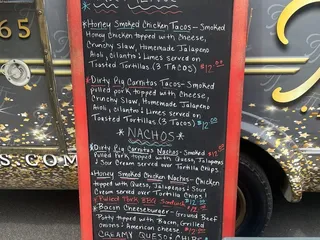 *Honey Smoked Chicken Tacos - Smoked
Honey Chicken topped with Cheese,
Crunchy Slaw, Homemade Jalapeno
Aioli, cilantro & Limes served on
Toasted Tortillas (3 TACOS) $12.00
*Dirty Pig Carnitas Tacos - Smoked
pulled pork topped with Cheese,
Crunchy Slaw, Homemade Jalapeno
Aioli, cilantro & Limes served on
Toasted Tortillas (3 Tacos) $12.00
*NACHOS*
*Dirty Pig Carnitas Nachos - Smoked
Pulled Pork topped with Queso, Jalapeno
& Sour Cream served over Tortilla Chips
*Honey Smoked Chicken Nachos - Chicken
topped with Queso, Jalapenos & Sour
Cream served over Tortilla Chips
*Pulled Pork BBQ Sandwich
*Bacon Cheeseburger - Ground Beef
Patty topped with Bacon, Grilled
onions & American cheese $12.00
CREAMY QUESO & CHIPS
65
S.COM